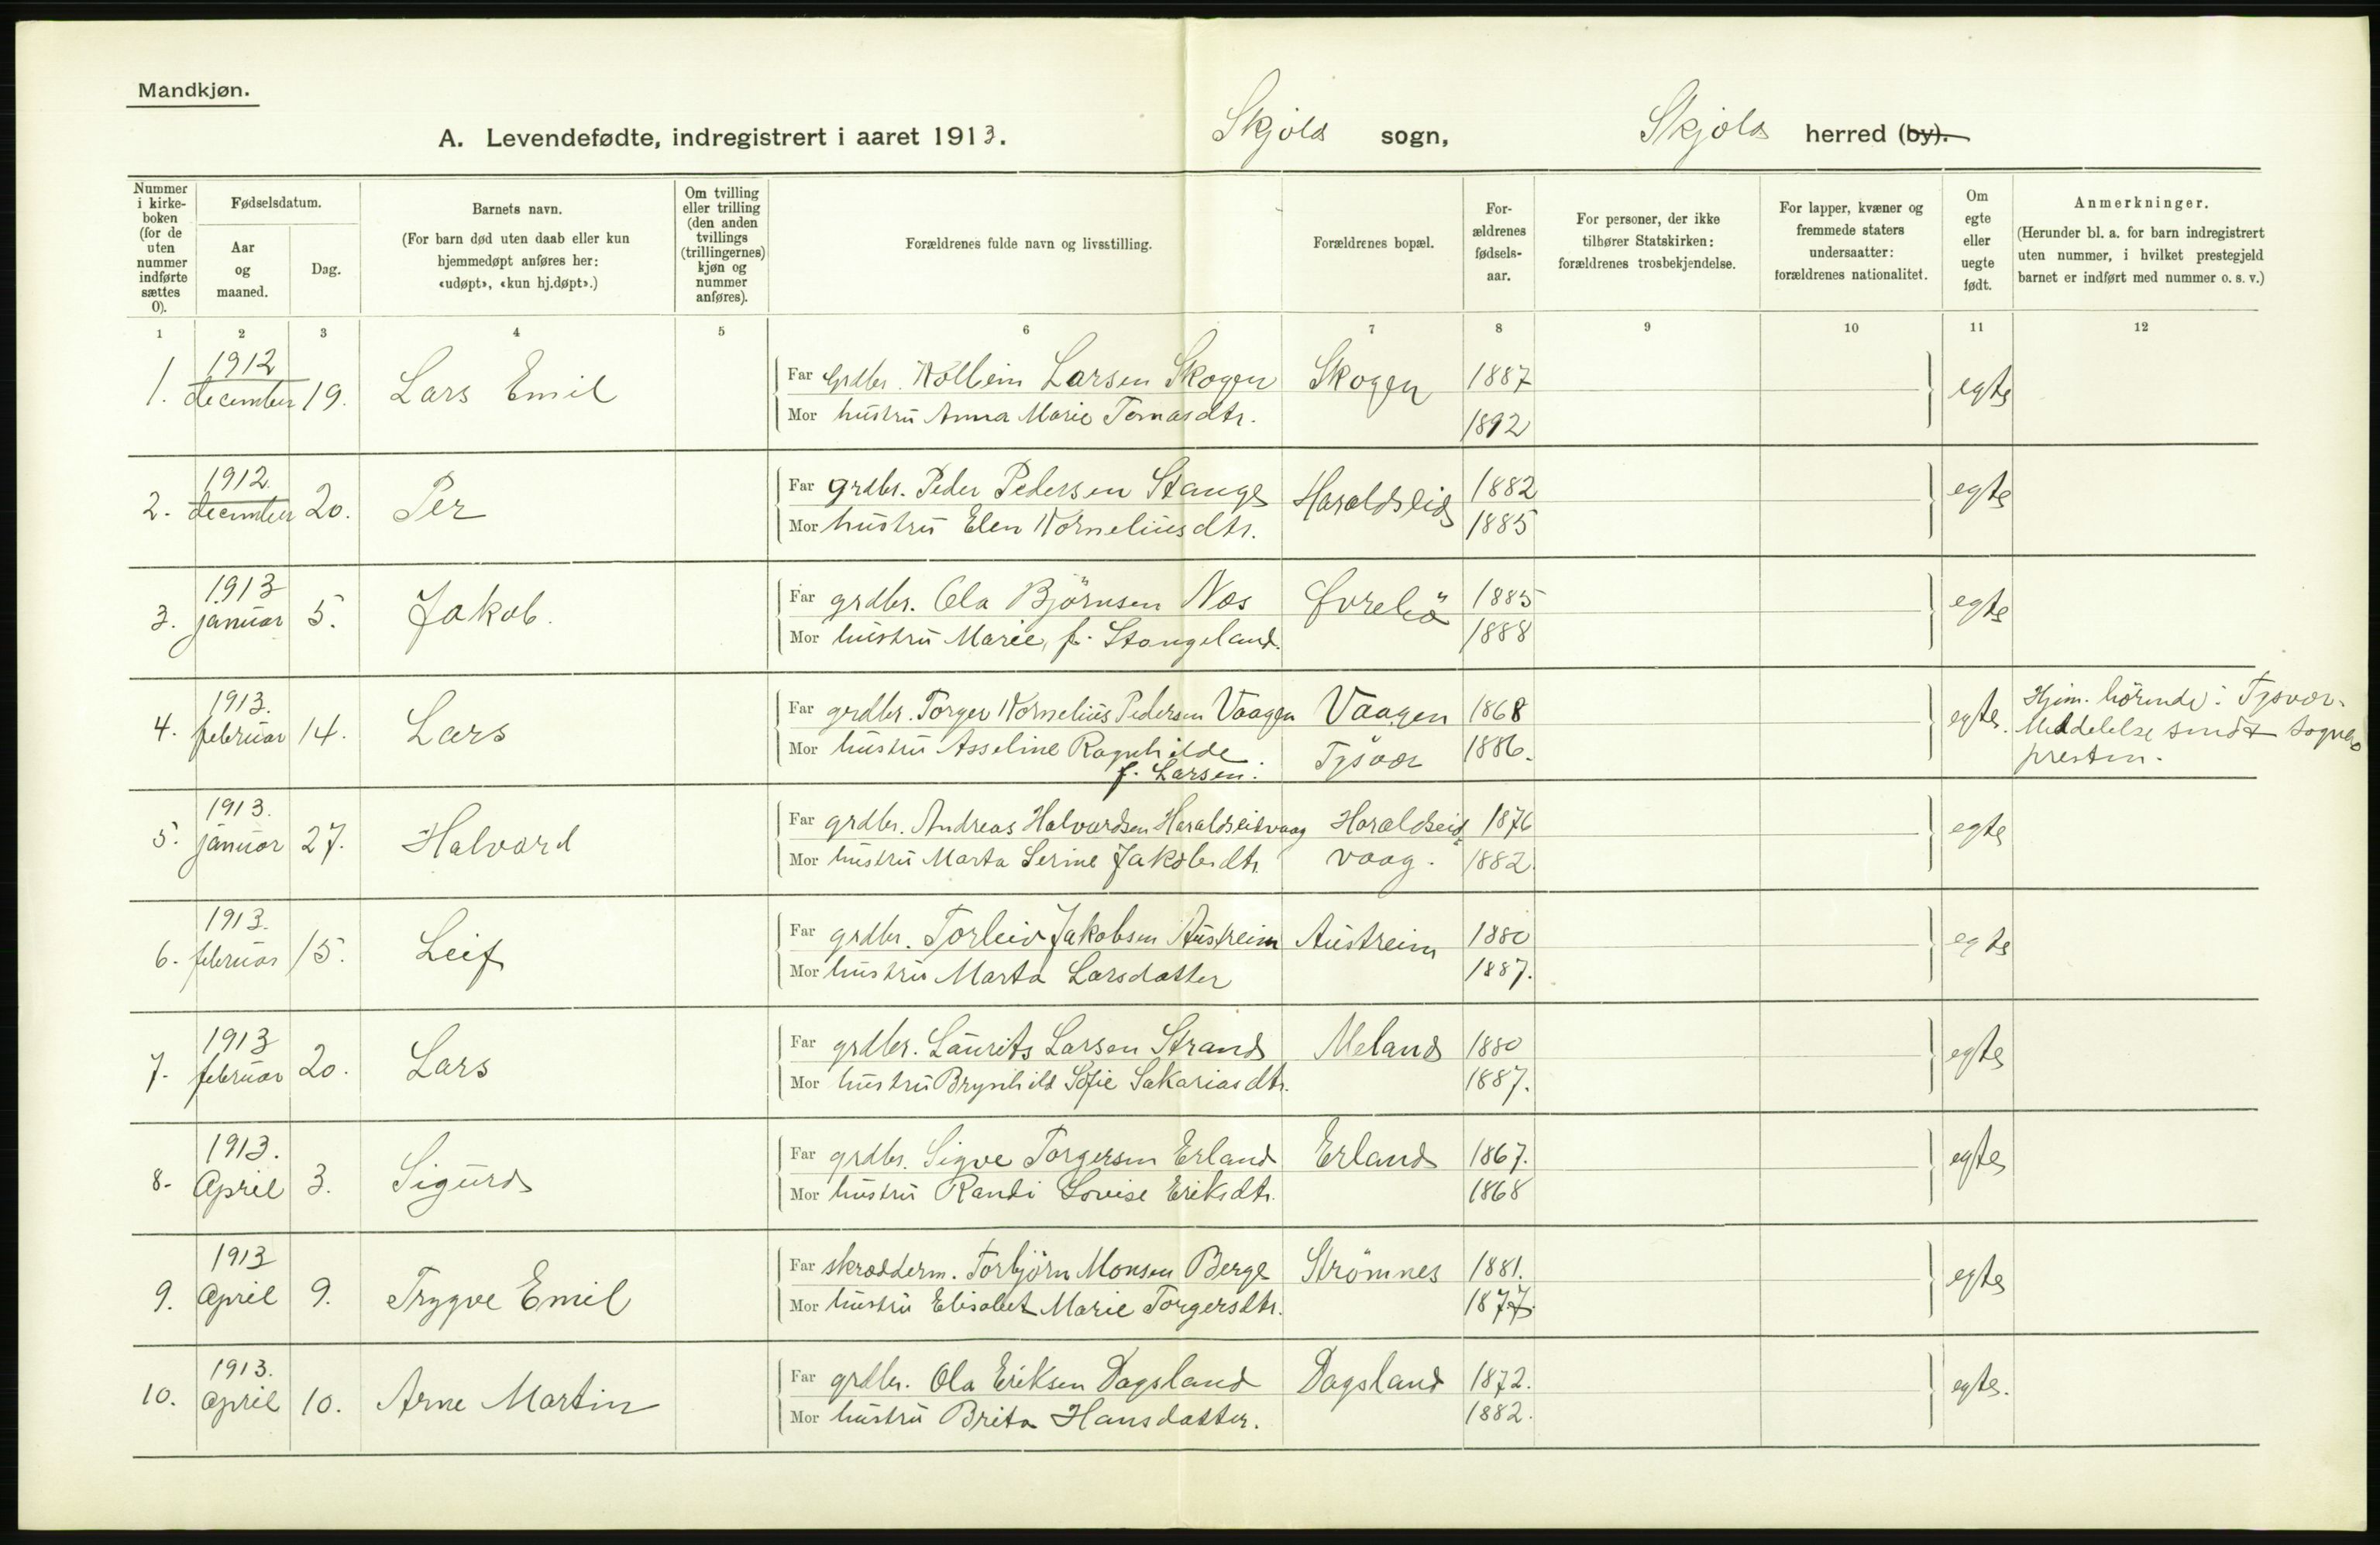 Mandkjøn.
A. Levendefødte, indregistrert i aaret 1913. Skjold sogn, Skjold herred (by).
Nummer i kirkeboken (for de uten nummer indførte sættes 0).
Fødselsdatum.
Aar og maaned.
Dag.
Barnets navn.
(For barn død uten daab eller kun hjemmedøpt anføres her: «udøpt», «kun hj.døpt».)
Om tvilling eller trilling (den anden tvillings (trillingernes) kjøn og nummer anføres).
Forældrenes fulde navn og livsstilling.
Forældrenes bopæl.
Forældrenes fødselsaar.
For personer, der ikke tilhører Statskirken: forældrenes trosbekjendelse.
For lapper, kvæner og fremmede staters undersaatter: forældrenes nationalitet.
Om egte eller uegte født.
Anmerkninger.
(Herunder bl. a. for barn indregistrert uten nummer, i hvilket prestegjeld barnet er indført med nummer o. s. v.)
1 2 3 4 5 6 7 8 9 10 11 12
1. 1912 december 19. Lars Emil
Far Grdbr. Kolbein Larsen Skogen Skogen 1887 egte
Mor hustru Anna Marie Tomasdtr. 1892
2. 1912. december 20. Per
Far grdbr. Peder Pedersen Stange Haraldseid 1882 egte
Mor hustru Elen Korneliusdtr. 1885
3. 1913 januar 5. Jakob.
Far grdbr. Ola Björnsen Nes 1885 egte
Mor hustru Marie, f. Stangeland. 1888
4. 1913. februar 14. Lars
Far grdbr. Torger Kornelius Pedersen Vaagen Vaagen 1868 egte. Hjem. hörende: Tysvær.
Mor hustru Asseline Ragnhilde f. Larsen. Tysvær 1886. Meddelelse sendt sogne presten.
5. 1913. januar 27. Halvard
Far grdbr. Andreas Halvardsen Haraldseidvaag Haraldseid 1876 egte
Mor hustru Marta Serine Jakobsdtr. vaag. 1882.
6. 1913. februar 15. Leif
Far grdbr. Torleiv Jakobsen Austreim Austreim 1880 egte
Mor hustru Marta Larsdatter 1887.
7. 1913 februar 20. Lars
Far grdbr. Laurits Larsen Strand Meland 1880 egte
Mor hustru Brynhild Sofie Sakariasdtr. 1887.
8. 1913. April 3. Sigurd
Far grdbr. Sigve Torgersen Erland Erland 1867. egte
Mor hustru Randi Lovise Eriksdtr. 1868
9. 1913 April 9. Trygve Emil
Far skrædderm. Torbjörn Monsen Berge Strömnes 1881. egte
Mor hustru Elisabet Marie Torgersdtr. 1877.
10. 1913. April 10. Arne Martin
Far grdbr. Ola Eriksen Dagsland Dagsland 1872. egte.
Mor hustru Brita Hansdatter. 1882.